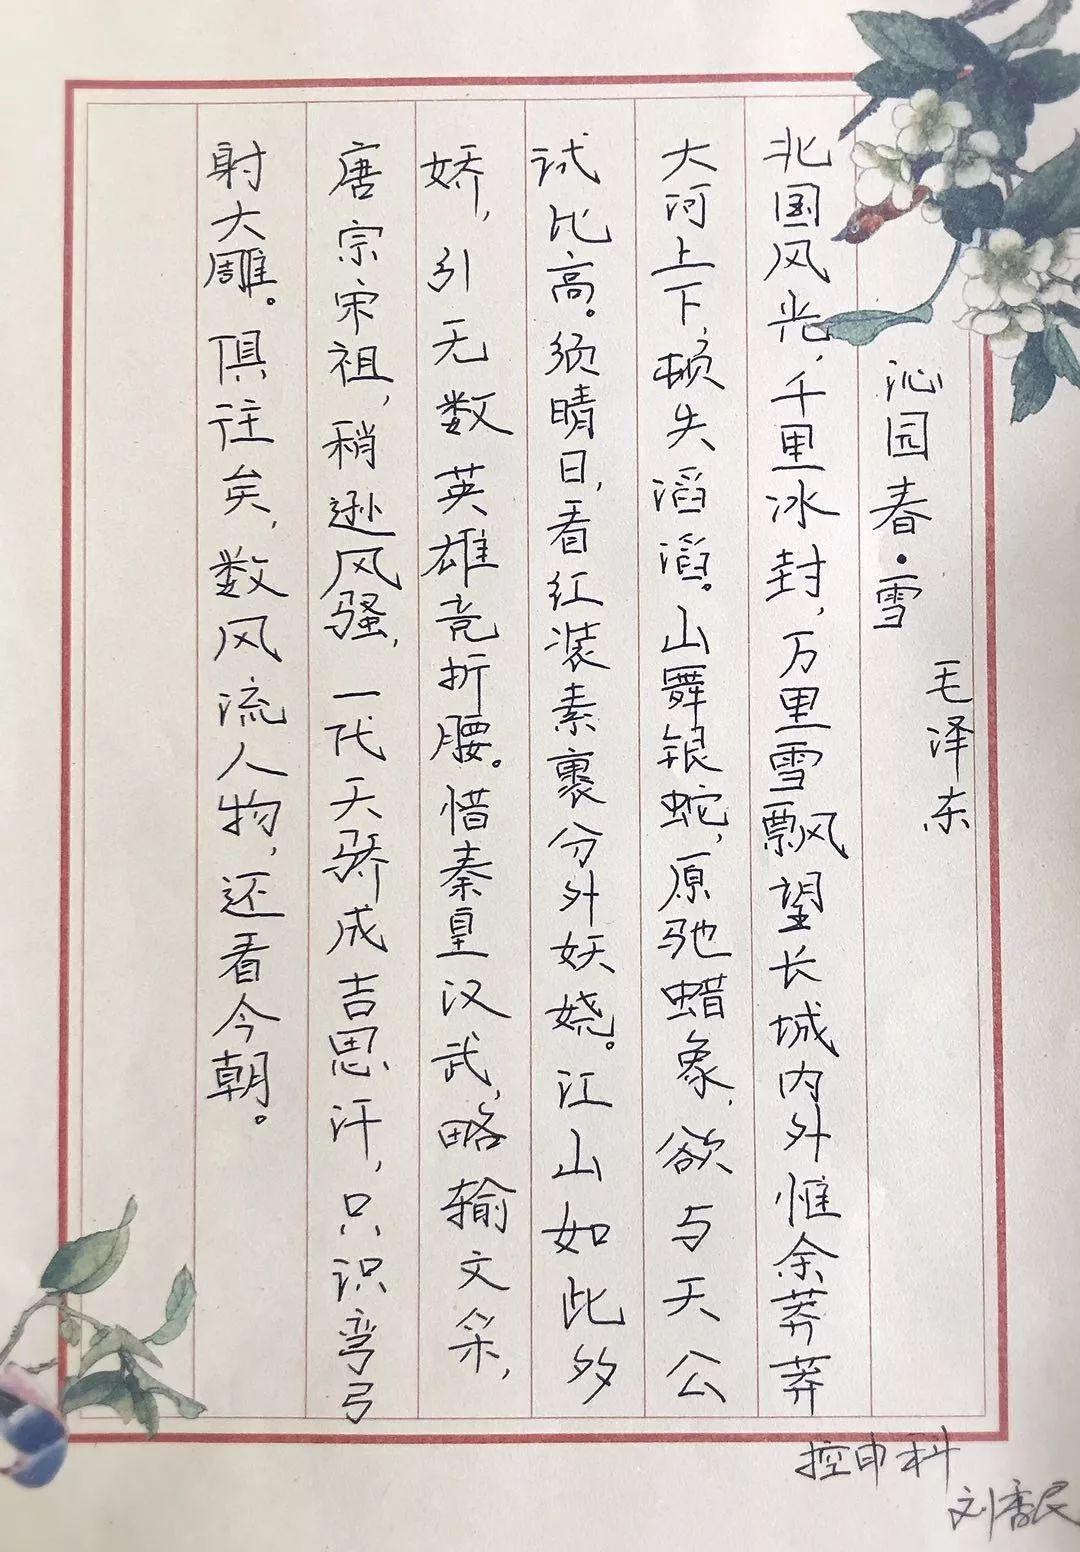 沁园春·雪
毛泽东
北国风光,千里冰封,万里雪飘望长城内外惟余莽莽
大河上下,顿失滔滔。山舞银蛇,原驰蜡象,欲与天公
试比高。须晴日,看红装素裹分外妖娆。江山如此多
娇,引无数英雄竞折腰。惜秦皇汉武,略输文采,
唐宗宋祖,稍逊风骚,一代天骄成吉思汗,只识弯弓
射大雕。俱往矣,数风流人物,还看今朝。
控申科
刘香民